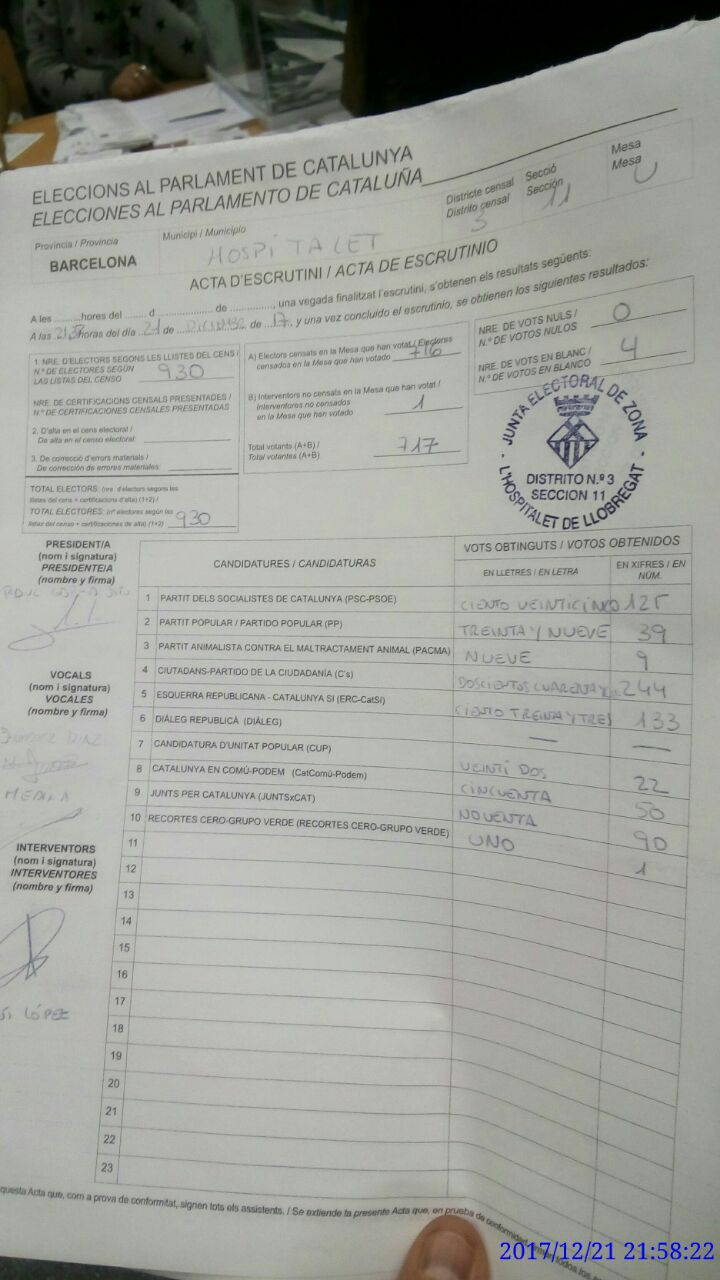 ELECCIONS AL PARLAMENT DE CATALUNYA
ELECCIONES AL PARLAMENTO DE CATALUÑA
Província / Provincia
BARCELONA
Municipi / Municipio
HOSPITALET
Districte censal
Distrito censal
3
Secció
Sección
11
Mesa
Mesa
U
ACTA D'ESCRUTINI / ACTA DE ESCRUTINIO
A les ........hores del ...... d .................. de .............., una vegada finalitzat l'escrutini, s'obtenen els resultats següents:
A las horas del día 21 de DICIEMBRE de 17, y una vez concluido el escrutinio, se obtienen los siguientes resultados:
1. NRE. D'ELECTORS SEGONS LES LLISTES DEL CENS /
N.º DE ELECTORES SEGÚN
LAS LISTAS DEL CENSO
930
NRE. DE CERTIFICACIONS CENSALS PRESENTADES /
N.º DE CERTIFICACIONES CENSALES PRESENTADAS
2. D'alta en el cens electoral /
De alta en el censo electoral:
3. De correcció d'errors materials /
De corrección de errores materiales:
TOTAL ELECTORS: (nre. d'electors segons les
llistes del cens + certificacions d'alta) (1+2) /
TOTAL ELECTORES: (nº electores según las
listas del censo + certificaciones de alta) (1+2)
930
A) Electors censats en la Mesa que han votat / Electores
censados en la Mesa que han votado
716
B) Interventors no censats en la Mesa que han votat /
Interventores no censados
en la Mesa que han votado
1
Total votants (A+B) /
Total votantes (A+B)
717
NRE. DE VOTS NULS /
N.º DE VOTOS NULOS
0
NRE. DE VOTS EN BLANC /
N.º DE VOTOS EN BLANCO
4
JUNTA ELECTORAL DE ZONA
DISTRITO N.º 3
SECCION 11
L'HOSPITALET DE LLOBREGAT
PRESIDENT/A
(nom i signatura)
PRESIDENTE/A
(nombre y firma)
VOCALS
(nom i signatura)
VOCALES
(nombre y firma)
MEDINA
INTERVENTORS
(nom i signatura)
INTERVENTORES
(nombre y firma)
LÓPEZ
CANDIDATURES / CANDIDATURAS
VOTS OBTINGUTS / VOTOS OBTENIDOS
EN LLETRES / EN LETRA
EN XIFRES / EN NÚM.
1 PARTIT DELS SOCIALISTES DE CATALUNYA (PSC-PSOE) CIENTO VEINTICINCO 125
2 PARTIT POPULAR / PARTIDO POPULAR (PP) TREINTA Y NUEVE 39
3 PARTIT ANIMALISTA CONTRA EL MALTRACTAMENT ANIMAL (PACMA) NUEVE 9
4 CIUTADANS-PARTIDO DE LA CIUDADANÍA (C's) DOSCIENTOS 244
5 ESQUERRA REPUBLICANA - CATALUNYA SÍ (ERC-CatSí) CIENTO TREINA Y TRES 133
6 DIÀLEG REPUBLICÀ (DIÀLEG) — —
7 CANDIDATURA D'UNITAT POPULAR (CUP) VEINTI DOS 22
8 CATALUNYA EN COMÚ-PODEM (CatComú-Podem) CINCUENTA 50
9 JUNTS PER CATALUNYA (JUNTSxCAT) NOVENTA 90
10 RECORTES CERO-GRUPO VERDE (RECORTES CERO-GRUPO VERDE) UNO 1
11
12
13
14
15
16
17
18
19
20
21
22
23
questa Acta que, com a prova de conformitat, signen tots els assistents. / Se extiende la presente Acta que, en prueba de conformidad, firman todos los
2017/12/21 21:58:22